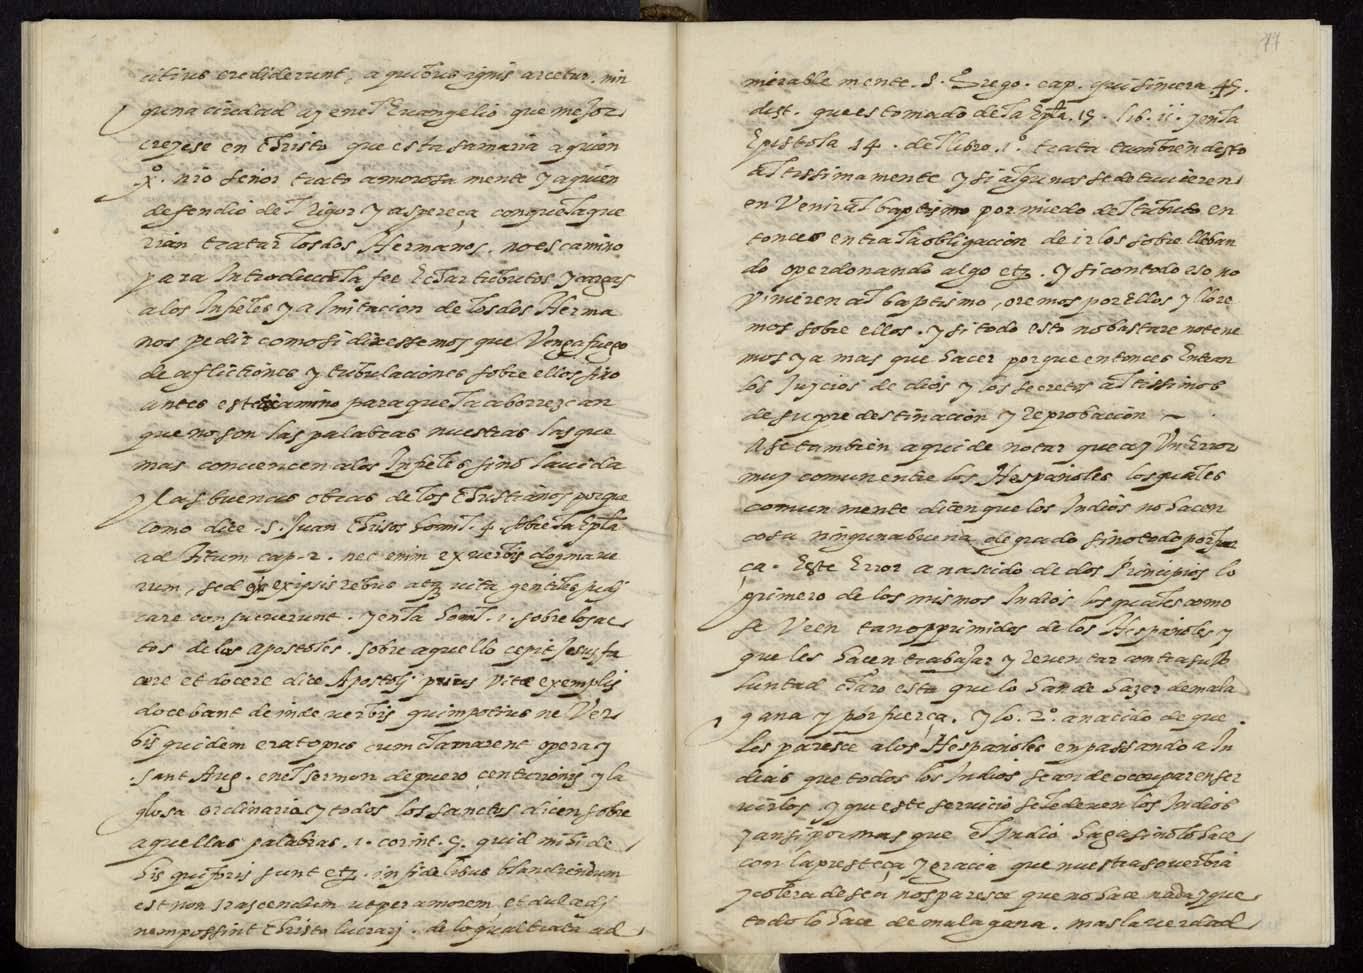 citius crediderunt, a quibus ignis arcetur. nin
guna ciudad ay en el Evangelio que mejor
creyese en Christo que esta samaria a quien
xº. nro señor trato amorosa mente y a quien
defendio del Rigor y aspereça, con que la que
rian tratar los dos Hermanos. no es camino
para Introducir la fee Echar tributos y cargas
a los Infieles y a Imitacion de los dos Herma
nos pedir como si dixessemos que Venga fuego
de aflictiones y tribulaciones sobre ellos sino
antes este camino para que la aborrezcan
que no son las palabras nuestras las que
mas convencen a los Infieles sino la vida
y las buenas obras de los Christianos porque
como dice .S. Juan Chrisos homil. 4. sobre la Epla
ad Titum cap. 2. nec enim ex verbis dogma ve
rum, sed ex ipsis rebus atq vita gentiles judi
care consueverunt. y en la homil. 1. sobre los ac
tos de los apostoles. sobre aquello cepit Jesus fa
cere et docere dice Apostoli prius vitae exemplis
docebant deinde verbis quimpotius ne Ver
bis quidem erat opus cum clamarent opera y
.sant Aug. en el sermon de puero centurionis y la
glosa ordinaria y todos los sanctos dicen sobre
aquellas palabras. 1. corint. 5. quid mihi de
his qui foris sunt etz. infidelibus blandiendum
est non irascendum ut per amorem et dulcedi
nem possint Christo lucrari. de lo qual trata ad
77
mirable mente .S. Grego. cap. qui sincera 45.
dist. que es tomado de la Epla. 15. lib. 11. y en la
Epistola 14. del libro .1º. trata tambien desto
altissimamente y si algunos se detuvieren
en Venir al baptismo por miedo del tributo en
tonces entra la obligacion de irlos sobre lleban
do o perdonando algo etz. y si con todo eso no
vinieren al baptismo, oremos por Ellos y llore
mos sobre ellos. y si todo esto no bastare no tene
mos ya mas que hacer porque entonces Entran
los Juycios de dios y los secretos altissimos
de su predestinacion y reprobacion
Ase tambien aqui de notar que ay Un Error
muy comun entre los Hespañoles los quales
comunmente dicen que los Indios no hacen
cosa ninguna buena de grado sino todo por fuer
ça. Este Error a nascido de dos Principios lo
primero de los mismos Indios los quales como
se Veen tan opprimidos de los Hespañoles y
que les hacen trabajar y reventar contra su vo
luntad claro esta que lo han de hazer de mala
gana y por fuerça. y lo. 2º. a nacido de que
les paresce a los Hespañoles en passando a In
dias que todos los Indios se an de ocupar en ser
virlos y que este servicio se le deven los Indios
y ansi por mas que el Indio haga si no lo hace
con la presteça y gracia que nuestra sobervia
y colera desea nos paresce que no hace nada y que
todo lo hace de mala gana. mas la verdad